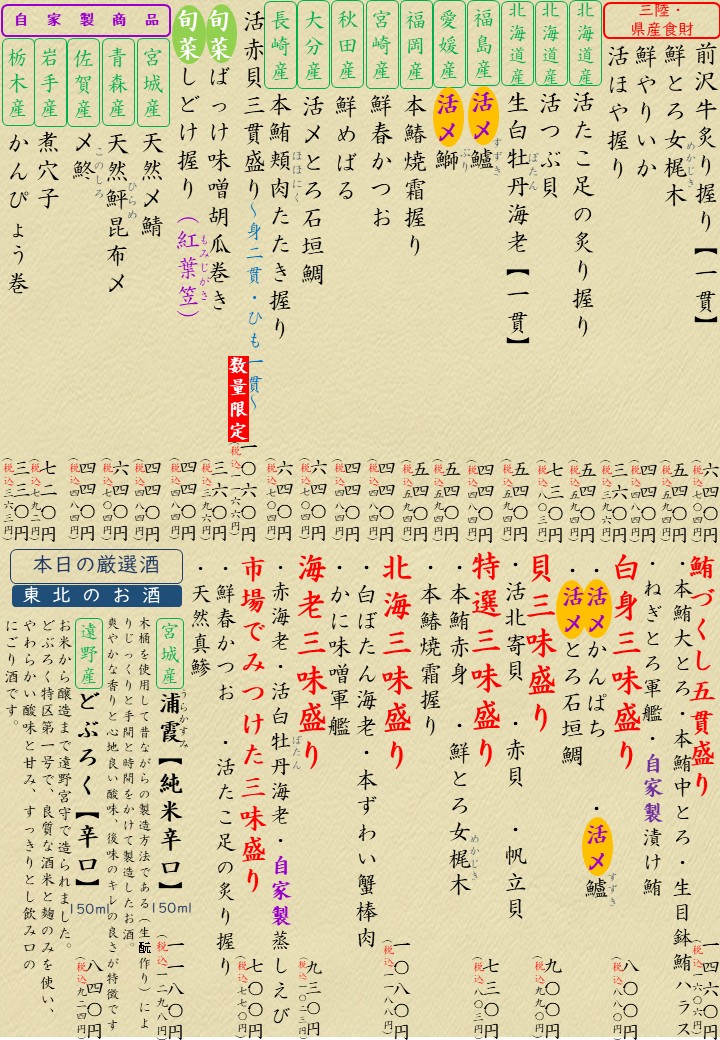 三陸・県産食財
前沢牛炙り握り【一貫】 六四〇円 (税込七〇四円)
鮮とろ女梶木 めかじき 五四〇円 (税込五九四円)
鮮やりいか 四四〇円 (税込四八四円)
活ほや握り 三六〇円 (税込三九六円)
北海道産 活たこ足の炙り握り 五四〇円 (税込五九四円)
北海道産 活つぶ貝 七三〇円 (税込八〇三円)
北海道産 生白牡丹海老【一貫】 ぼたん 五四〇円 (税込五九四円)
福島産 活〆鱸 すずき 四四〇円 (税込四八四円)
愛媛産 活〆鰤 ぶり 五四〇円 (税込五九四円)
福岡産 本鰆焼霜握り 五四〇円 (税込五九四円)
宮崎産 鮮春かつお 四四〇円 (税込四八四円)
秋田産 鮮めばる 四四〇円 (税込四八四円)
大分産 活〆とろ石垣鯛 六四〇円 (税込七〇四円)
長崎産 本鮪頬肉たたき握り ほほにく 六四〇円 (税込七〇四円)
活赤貝三貫盛り〜身二貫・ひも一貫〜 数量限定 一〇六〇円 (税込一一六六円)
旬菜 ばっけ味噌胡瓜巻き 三六〇円 (税込三九六円)
旬菜 しどけ握り(紅葉笠) もみじがさ 四四〇円 (税込四八四円)
自家製商品
宮城産 天然〆鯖 四四〇円 (税込四八四円)
青森産 天然鮃昆布〆 ひらめ 六四〇円 (税込七〇四円)
佐賀産 〆鮗 このしろ 四四〇円 (税込四八四円)
岩手産 煮穴子 七二〇円 (税込七九二円)
栃木産 かんぴょう巻 三三〇円 (税込三六三円)
鮪づくし五貫盛り
・本鮪大とろ・本鮪中とろ・生目鉢鮪ハラス
・ねぎとろ軍艦・自家製漬け鮪
一四六〇円 (税込一六〇六円)
白身三味盛り
・活〆かんぱち
・活〆とろ石垣鯛 ・活〆鱸 すずき
八〇〇円 (税込八八〇円)
貝三味盛り
・活北寄貝 ・赤貝 ・帆立貝
九〇〇円 (税込九九〇円)
特選三味盛り
・本鮪赤身 ・鮮とろ女梶木 めかじき
・本鰆焼霜握り
七三〇円 (税込八〇三円)
北海三味盛り
・白ぼたん海老・本ずわい蟹棒肉
・かに味噌軍艦
一〇八〇円 (税込一一八八円)
海老三味盛り
・赤海老・活白牡丹海老・自家製蒸しえび ぼたん
九三〇円 (税込一〇二三円)
市場でみつけた三味盛り
・鮮春かつお ・活たこ足の炙り握り
・天然真鯵
七〇〇円 (税込七七〇円)
本日の厳選酒
東北のお酒
宮城産 浦霞【純米辛口】 うらかすみ 150ml 一一八〇円 (税込一二九八円)
木桶を使用して昔ながらの製造方法である(生酛作り)によ
りじっくりと手間と時間をかけて製造したお酒。
爽やかな香りと心地良い酸味、後味のキレの良さが特徴です
遠野産 どぶろく【辛口】 150ml 八四〇円 (税込九二四円)
お米から醸造まで遠野宮守で造られました。
どぶろく特区第一号で、良質な酒米と麹のみを使い、
やわらかい酸味と甘み、すっきりとし飲み口の
にごり酒です。